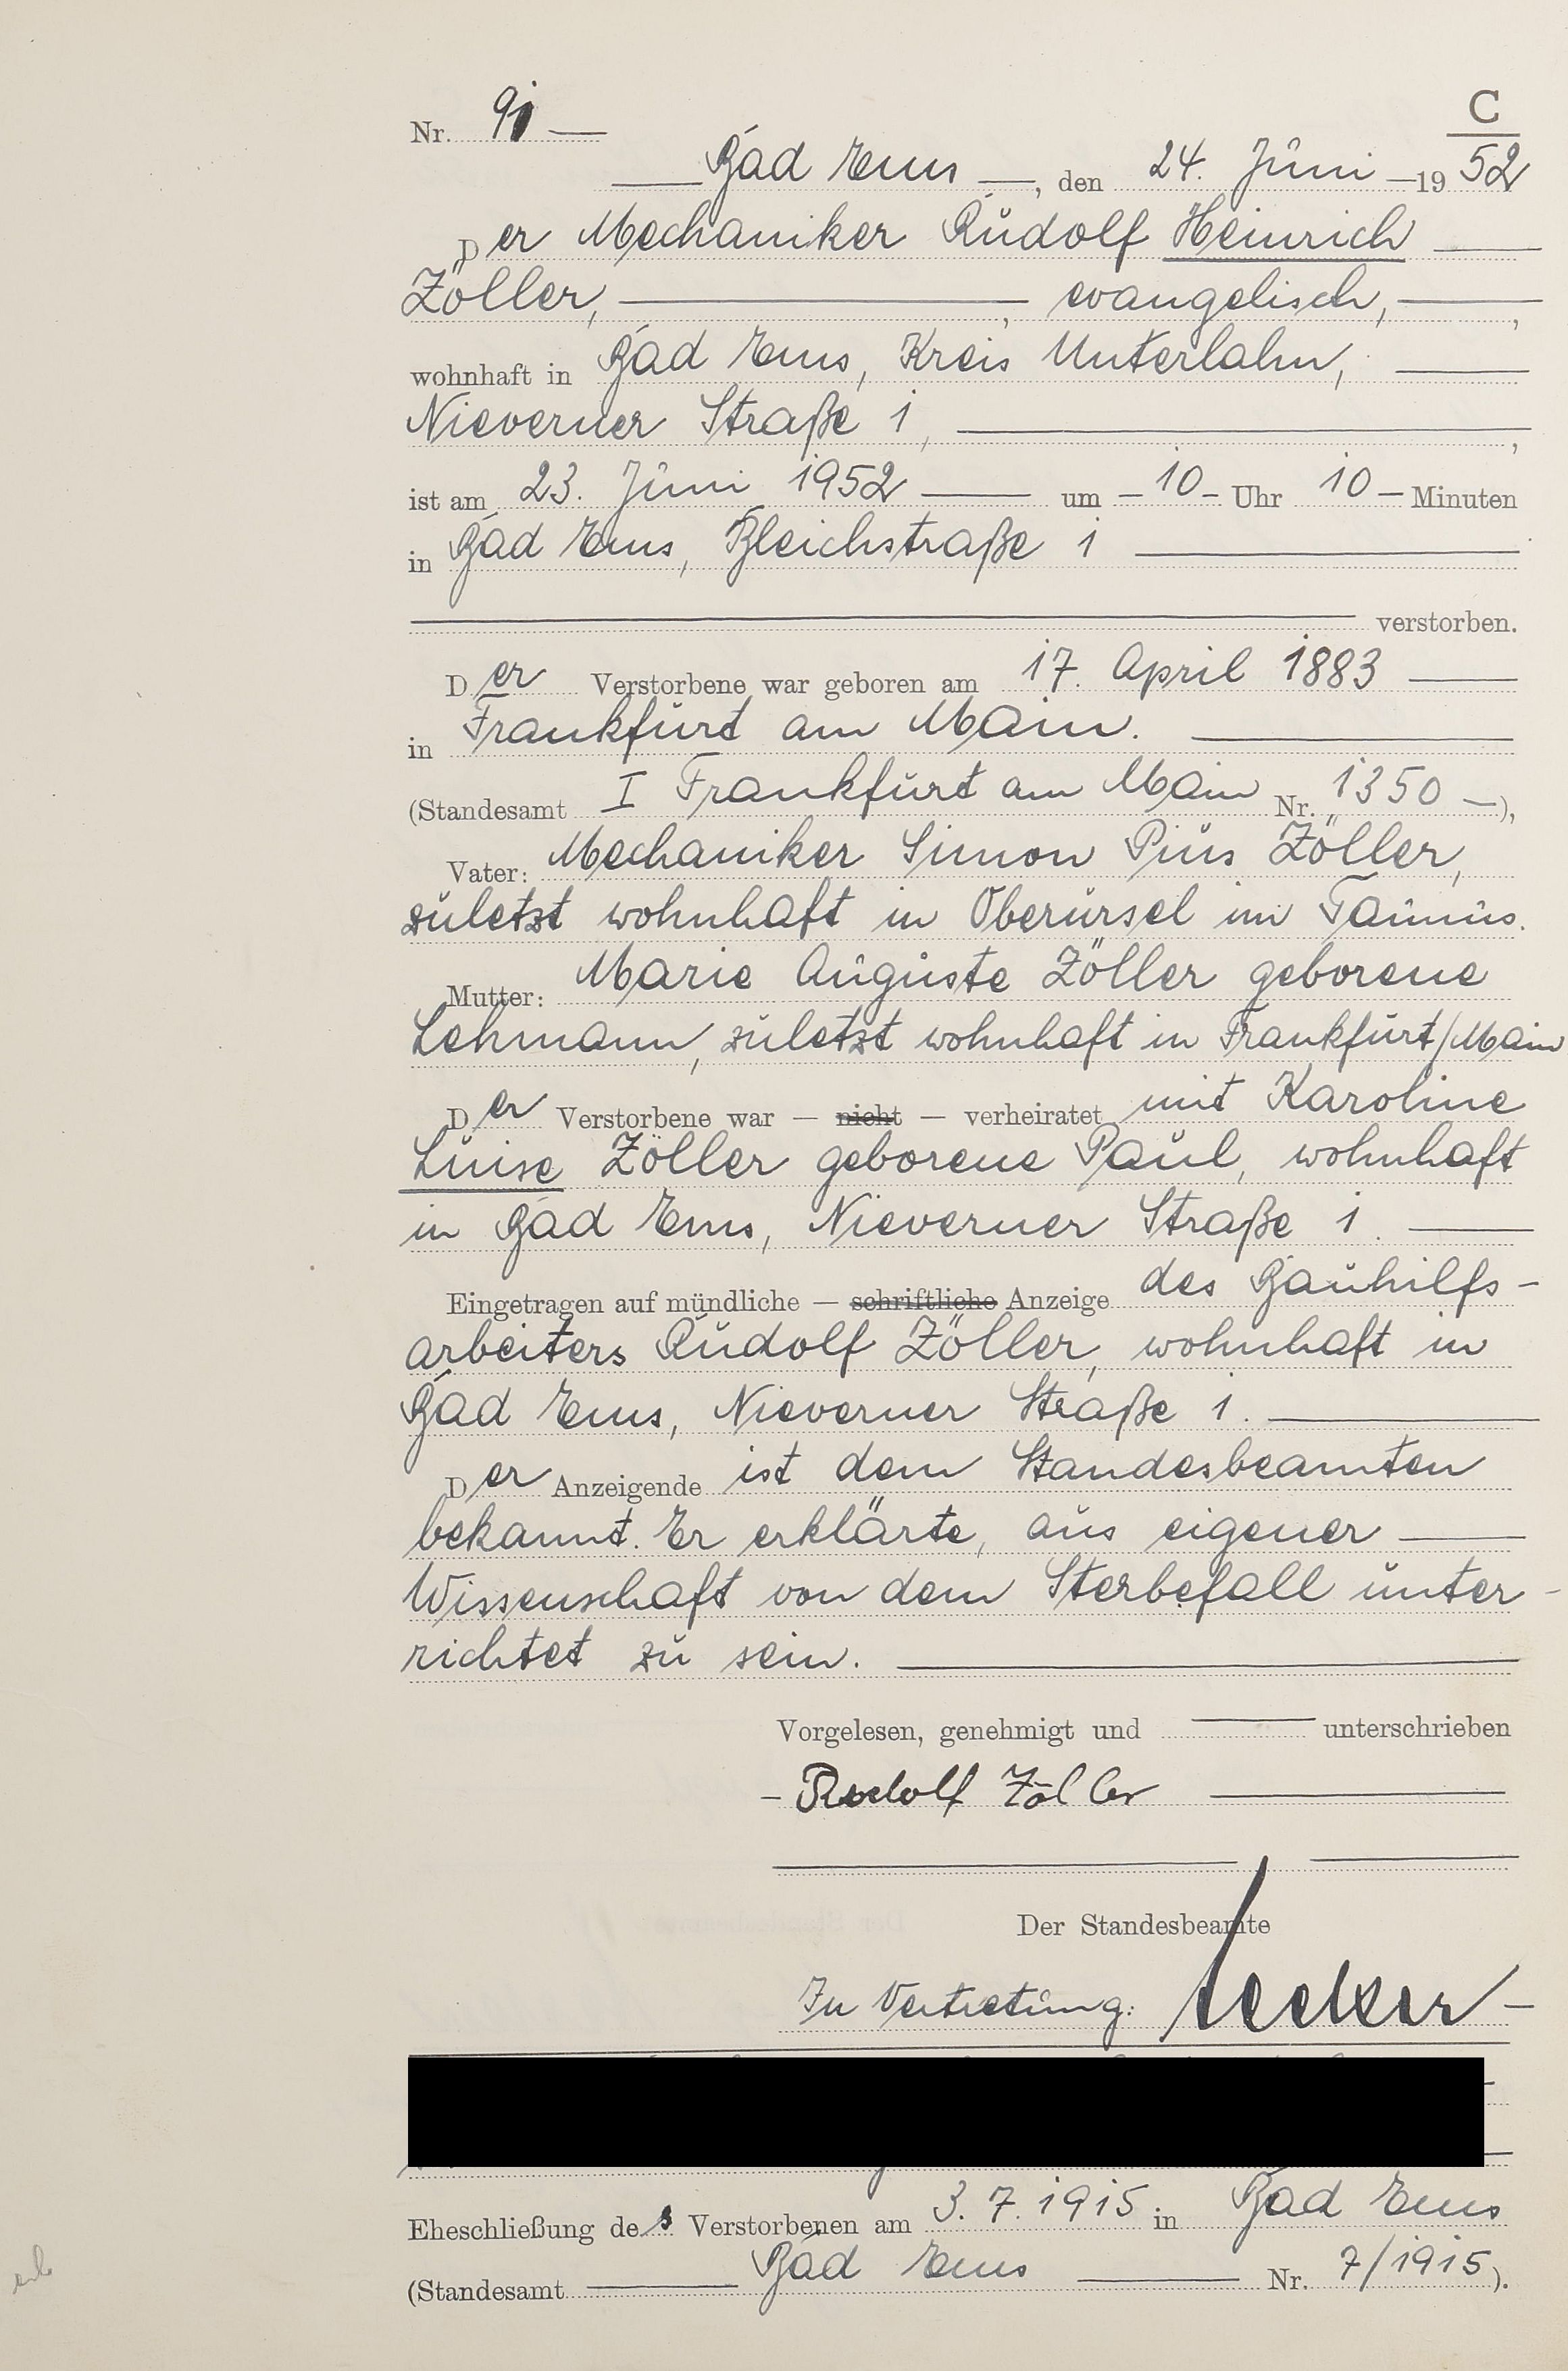 C
Nr. 91
Bad Ems, den 24. Juni 1952
Der Mechaniker Rudolf Heinrich
Zöller, evangelisch,
wohnhaft in Bad Ems, Kreis Unterlahn,
Nieverner Straße 1,
ist am 23. Juni 1952 um 10 Uhr 10 Minuten
in Bad Ems, Bleichstraße 1
verstorben.
Der Verstorbene war geboren am 17. April 1883
in Frankfurt am Main.
(Standesamt I Frankfurt am Main Nr. 1350),
Vater: Mechaniker Simon Pius Zöller,
zuletzt wohnhaft in Oberursel im Taunus.
Mutter: Marie Auguste Zöller geborene
Lehmann, zuletzt wohnhaft in Frankfurt/Main
Der Verstorbene war — nicht — verheiratet mit Karoline
Luise Zöller geborene Paul, wohnhaft
in Bad Ems, Nieverner Straße 1.
Eingetragen auf mündliche — schriftliche Anzeige des Bauhilfs-
arbeiters Rudolf Zöller, wohnhaft in
Bad Ems, Nieverner Straße 1.
Der Anzeigende ist dem Standesbeamten
bekannt. Er erklärte, aus eigener
Wissenschaft von dem Sterbefall unter-
richtet zu sein.
Vorgelesen, genehmigt und unterschrieben
Rudolf Zöller
Der Standesbeamte
In Vertretung:
Eheschließung des Verstorbenen am 3. 7. 1915 in Bad Ems
(Standesamt Bad Ems Nr. 7/1915).